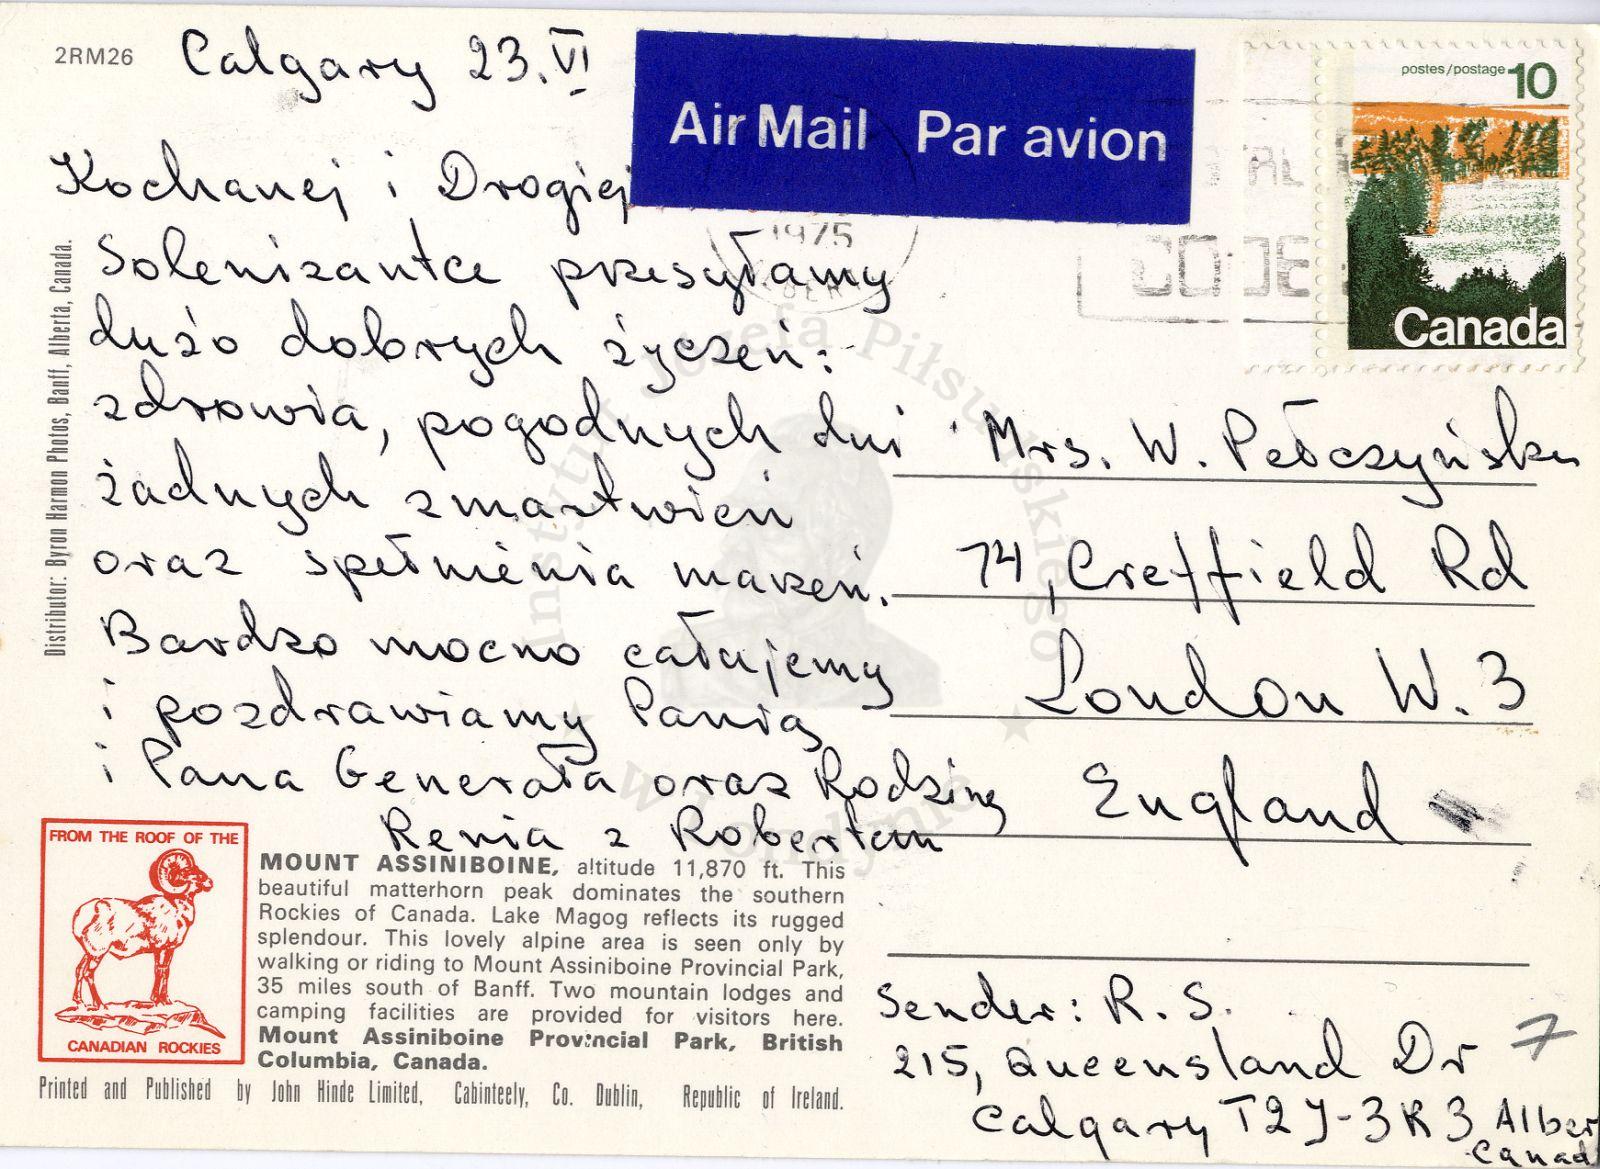 2RM26
Calgary 23.VI
Kochanej i Drogiej
Solenizantce przesyłamy
dużo dobrych życzeń:
zdrowia, pogodnych dni
żadnych zmartwień
oraz spełnienia marzeń.
Bardzo mocno całujemy
i pozdrawiamy Panią
i Pana Generała oraz Rodzinę
Renia z Robertem
Air Mail Par avion
1975
CODE
postes/postage 10
Canada
Mrs. W. Pełczyńska
74, Creffield Rd
London W. 3
England
Sender: R. S.
215, Queensland Dr
Calgary T2J-3K3 Alber
Canad
7
Distributor: Byron Harmon Photos, Banff, Alberta, Canada.
FROM THE ROOF OF THE
CANADIAN ROCKIES
MOUNT ASSINIBOINE, altitude 11,870 ft. This
beautiful matterhorn peak dominates the southern
Rockies of Canada. Lake Magog reflects its rugged
splendour. This lovely alpine area is seen only by
walking or riding to Mount Assiniboine Provincial Park,
35 miles south of Banff. Two mountain lodges and
camping facilities are provided for visitors here.
Mount Assiniboine Provincial Park, British
Columbia, Canada.
Printed and Published by John Hinde Limited, Cabinteely, Co. Dublin, Republic of Ireland.
Instytut Józefa Piłsudskiego
w Londynie